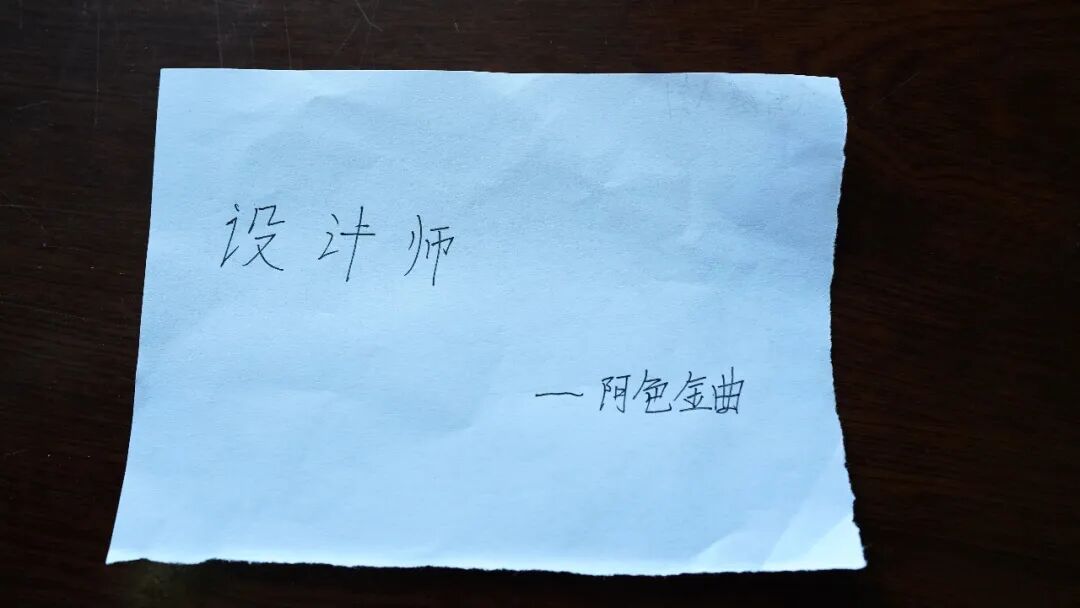 设计师
—阿色金曲